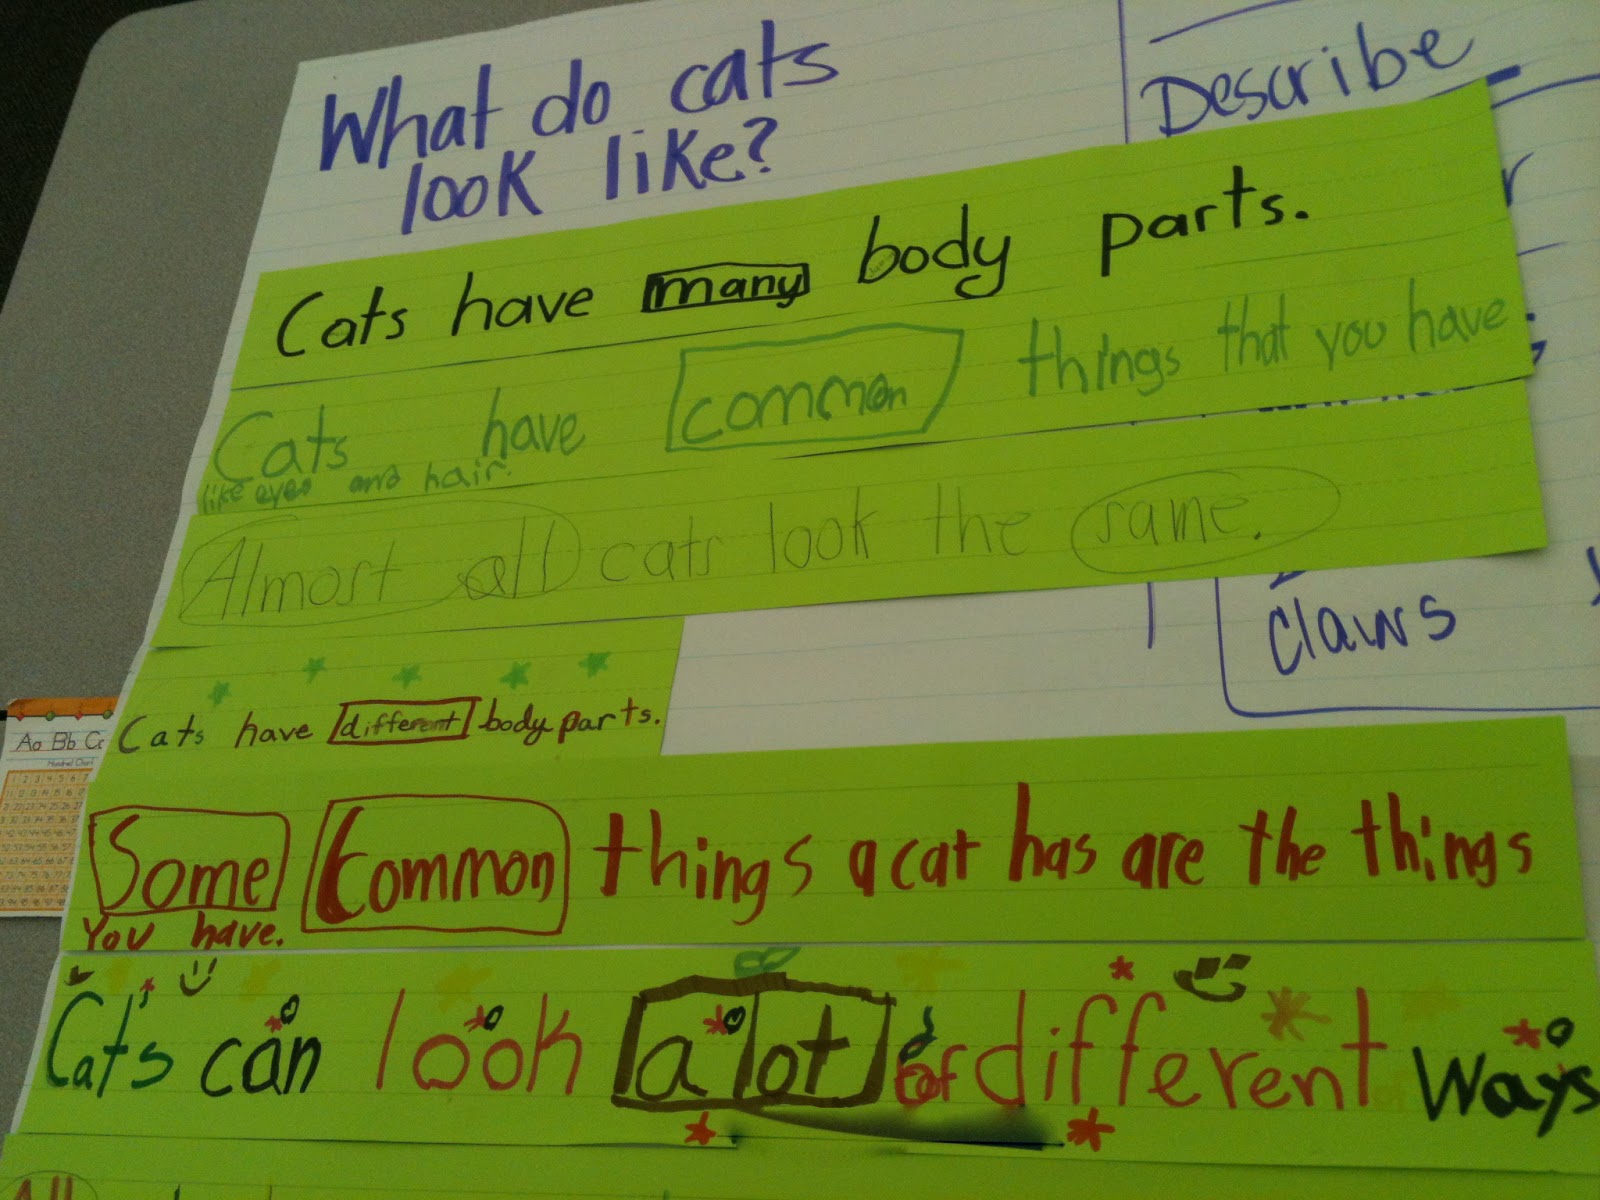 What do cats
look like?
Describe
Cats have many body parts.
Cats have common things that you have
like eyes and hair.
Almost all cats look the same.
claws
Cats have different body parts.
Aa Bb Cc
Some Common things a cat has are the things
You have.
Cats can look a lot of different ways
All